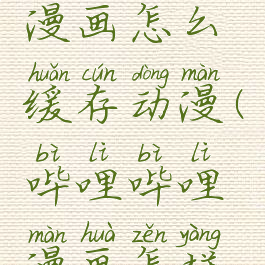 漫画怎么
huǎn cún dòng màn
缓存动漫(
bì lì bì lì
哔哩哔哩
màn huà zěn yàng
漫画怎样